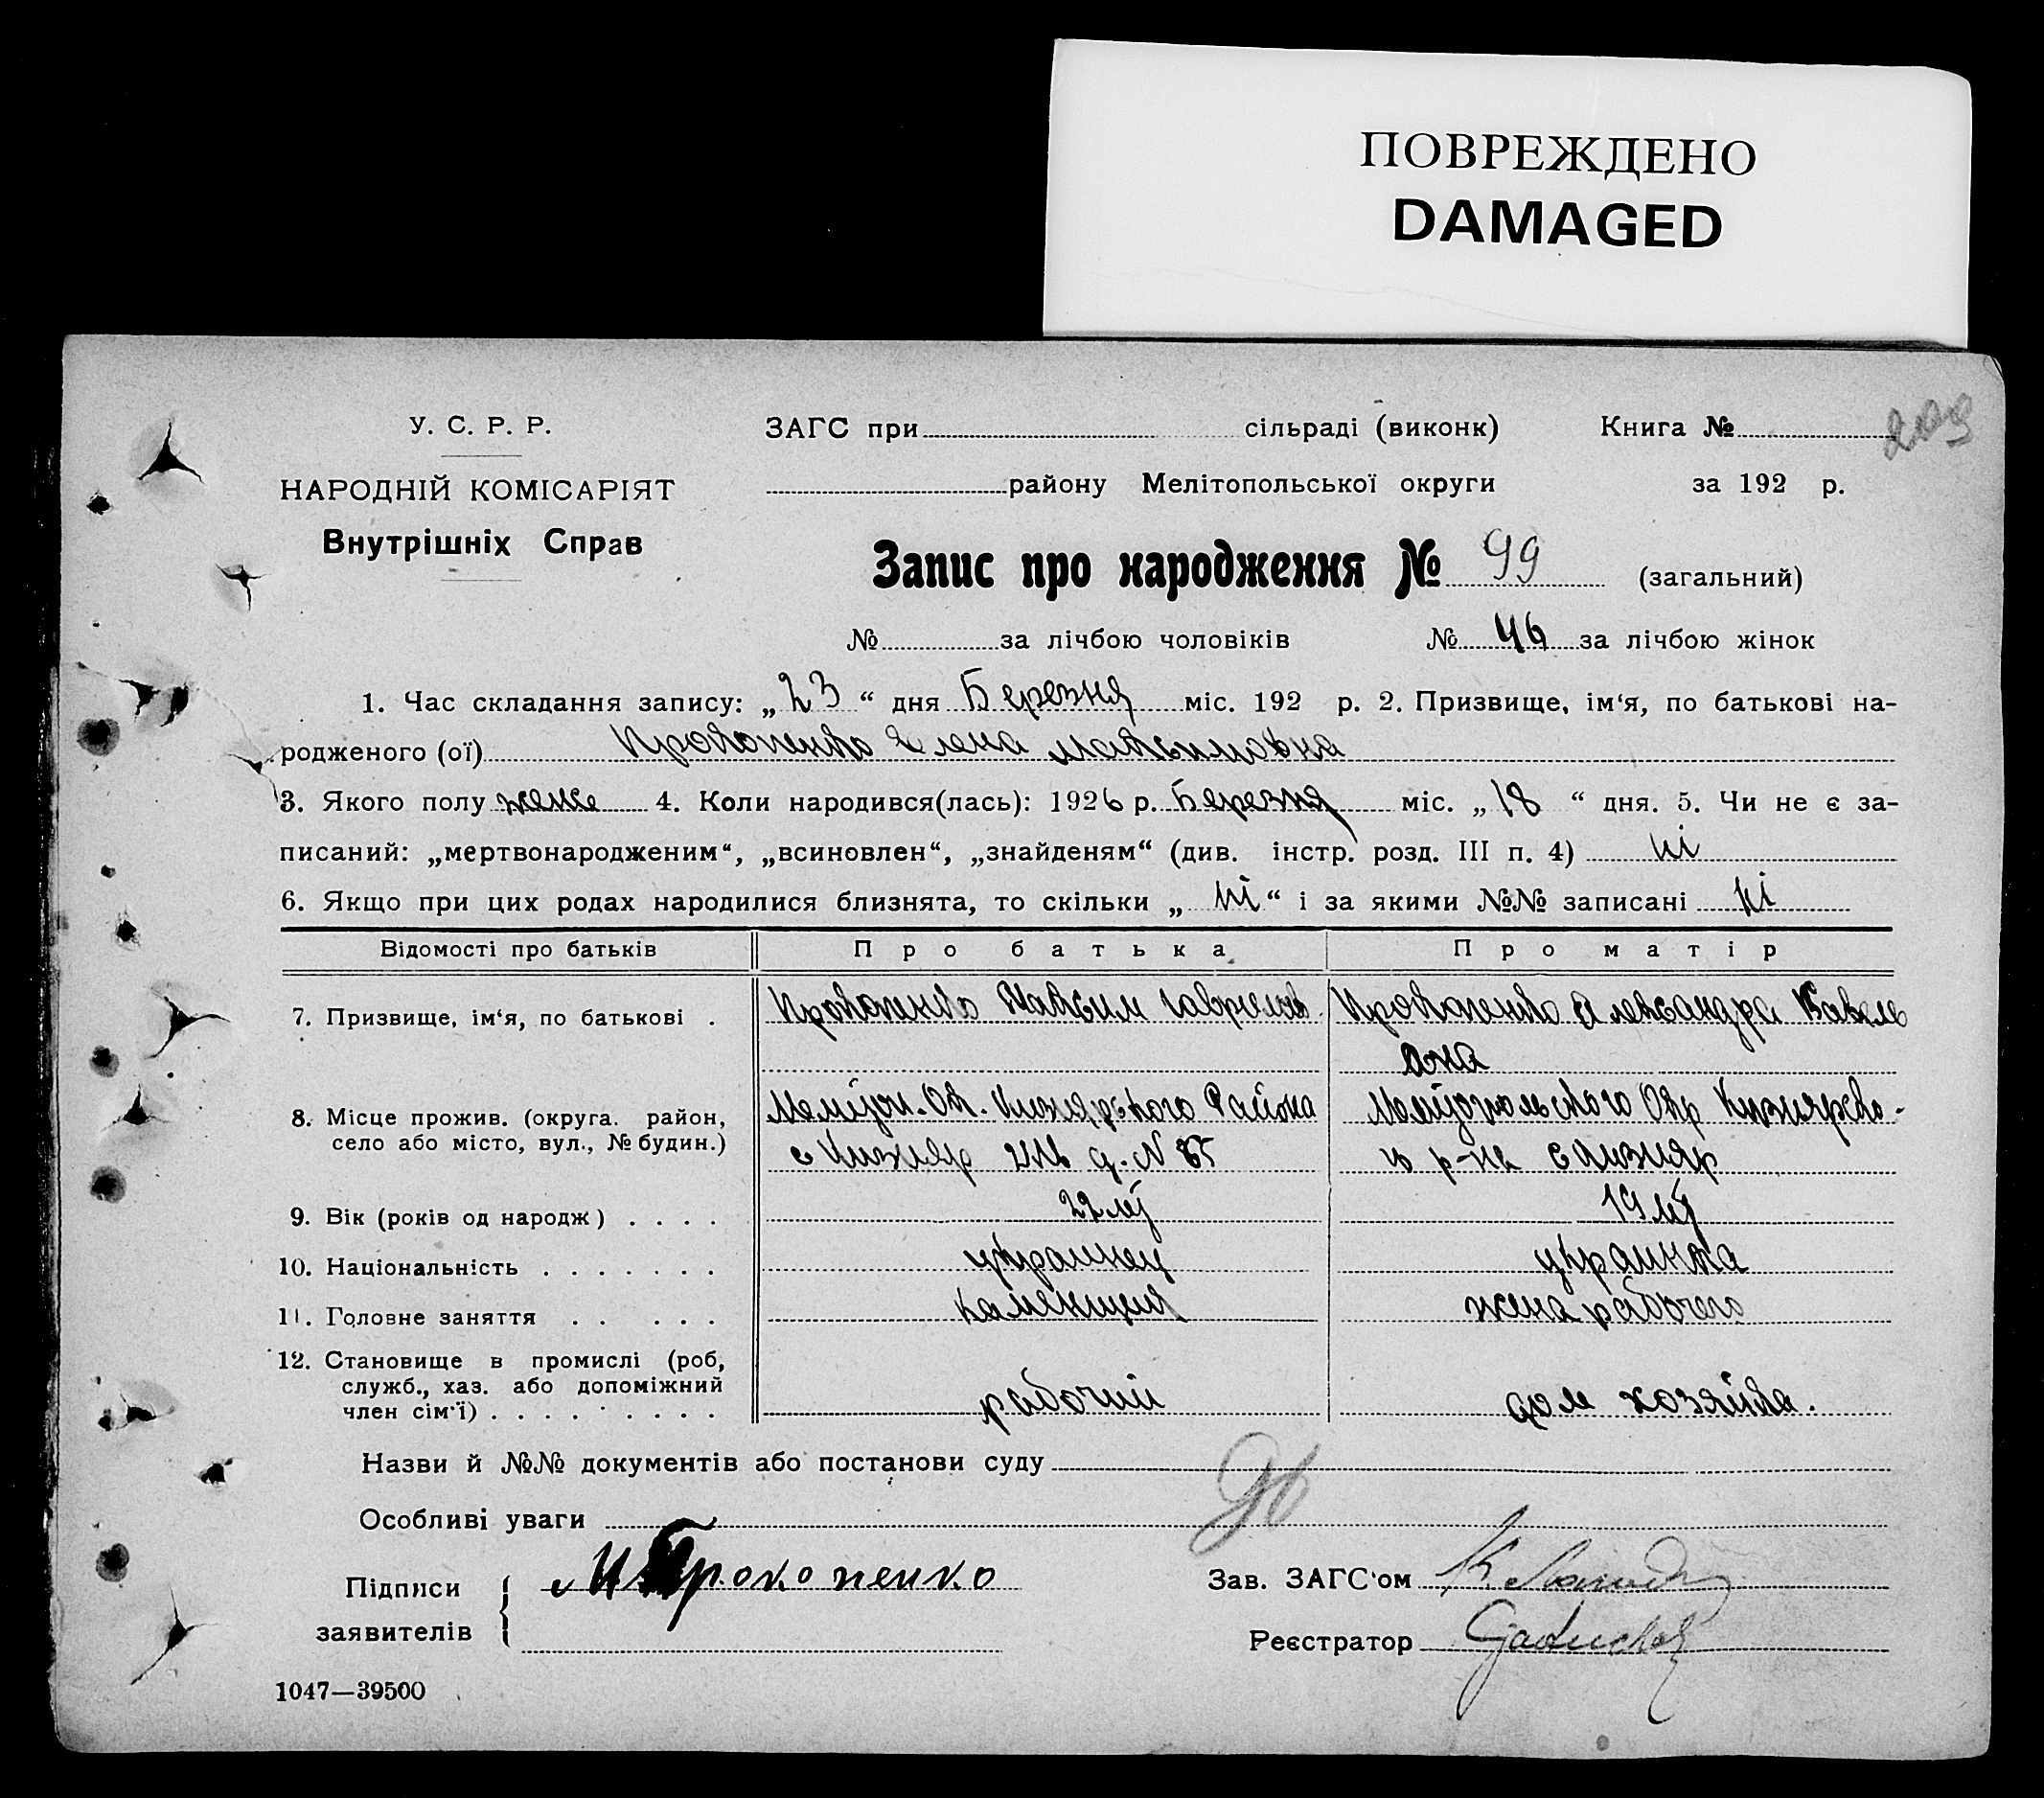 ПОВРЕЖДЕНО
DAMAGED
У. С. Р. Р.
НАРОДНІЙ КОМІСАРІЯТ
Внутрішніх Справ
ЗАГС при сільраді (виконк) Книга № 209
району Мелітопольської округи за 192 р.
Запис про народження № 99 (загальний)
№ за лічбою чоловіків № 46 за лічбою жінок
1. Час складання запису: „ 23 “ дня Березня міс. 192 р. 2. Призвище, ім‘я, по батькові на-
родженого (ої) Прокопенко Елена Максимовна
3. Якого полу женс 4. Коли народився(лась): 1926 р. Березня міс. „ 18 “ дня. 5. Чи не є за-
писаний: „мертвонародженим“, „всиновлен“, „знайденям“ (див. інстр. розд. III п. 4) ні
6. Якщо при цих родах народилися близнята, то скільки „ ні “ і за якими №№ записані ні
Відомості про батьків Про батька Про матір
7. Призвище, ім‘я, по батькові . Прокопенко Максим Прокопенко Александра Савель
овна
8. Місце прожив. (округа. район,
село або місто, вул., № будин.)
Мелітоп. Ок. Кизиярського Района Мелітопольского Окр Кизиярско-
с Кизияр д. N 85 го р-на с Кизияр
9. Вік (років од народж) . . . . 22 літ 19 літ
10. Національність . . . . . . . украинец украинка
11. Головне заняття . . . . . каменщик жена рабочего
12. Становище в промислі (роб,
служб., хаз. або допоміжний
член сім'ї) . . . . . . . . . рабочий дом хозяйка.
Назви й №№ документів або постанови суду
Особливі уваги
Підписи
заявителів
М Прокопенко
Зав. ЗАГС'ом
Реєстратор
1047—39500